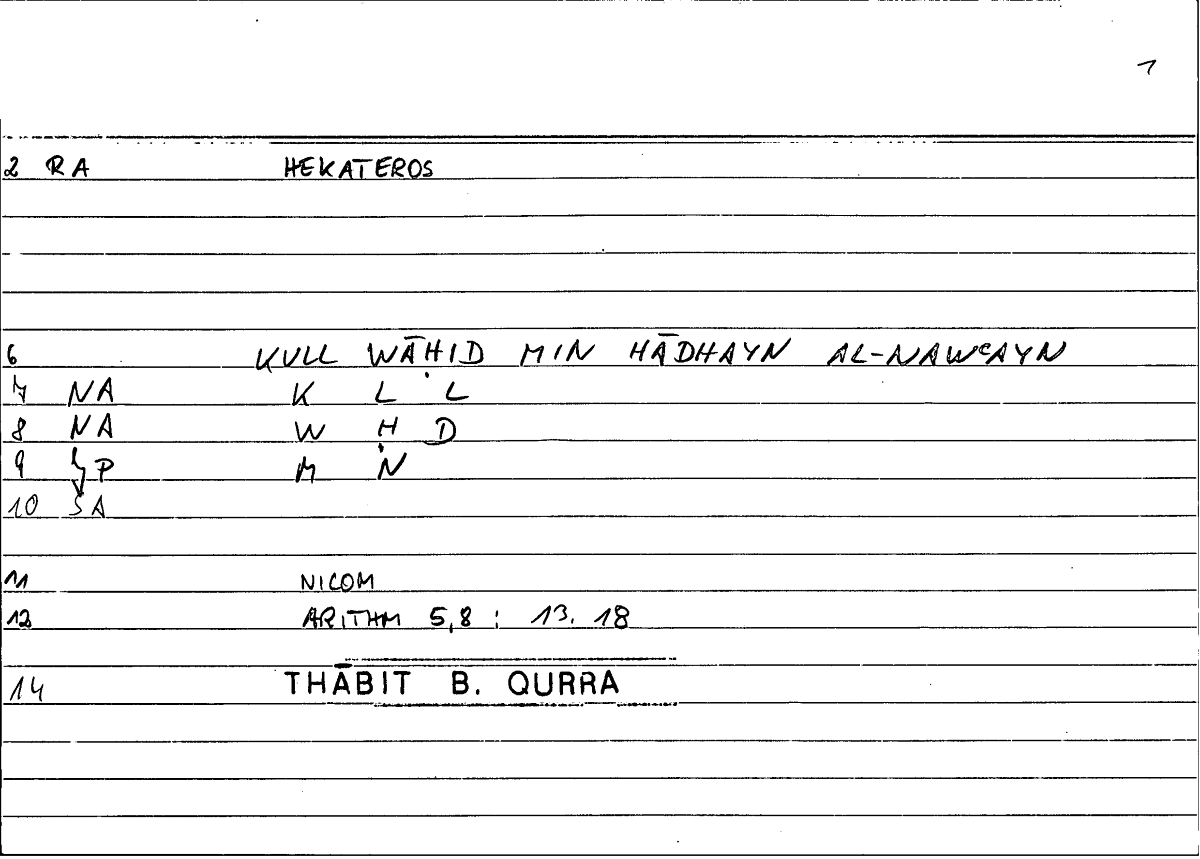 1
2 RA HEKATEROS
6 KULL WĀḤID MIN HĀDHAYN AL-NAWʿAYN
7 NA K L L
8 NA W Ḥ D
9 P M N
10 ŠA
11 NICOM
12 ARITHM 5,8 : 13. 18
14 THĀBIT B. QURRA